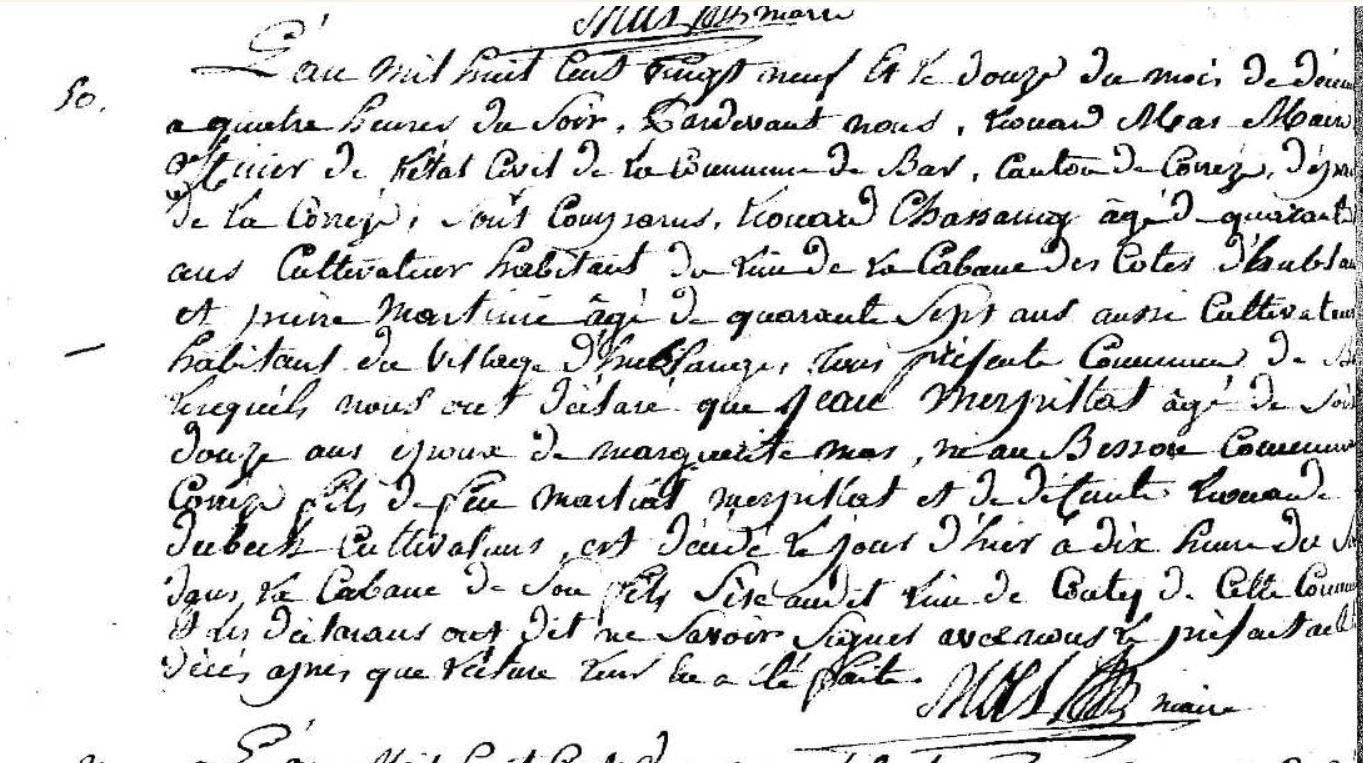 Mas maire
50.
L'an mil huit cent vingt neuf Et le douze du mois de décem
a quatre heures du soir, Pardevant nous, Léonard Mas Maire
officier de l'état Civil de la Commune de Bar, Canton de Corrèze, dépar
de la Corrèze, sont Comparus, Léonard Chassaing âgé de quarante
ans Cultivateur habitant du lieu de la Cabane des Cotes d'hublan
et pierre Martinie âgé de quarante sept ans aussi Cultivateur
habitant du village d'hublanges, tous présente Commune de B
lesquels nous ont déclaré que Jean Merpillat âgé de soix
douze ans époux de marguerite mas, né au Besson Commune
Corrèze fils de feu Martial merpillat et de défunte Léonarde
Cultivateurs, est décédé le jour d'hier à dix heure du s
dans la Cabane de son fils Sise audit lieu de Coutes de Cette Commu
Et les déclarans ont dit ne savoir signer avec nous le présent acte
décès après que lecture leur en a été faite.
Mas maire
L'an Mil huit Cent